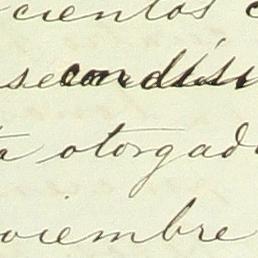 cientos
se condisi
a otorgad
oviembre